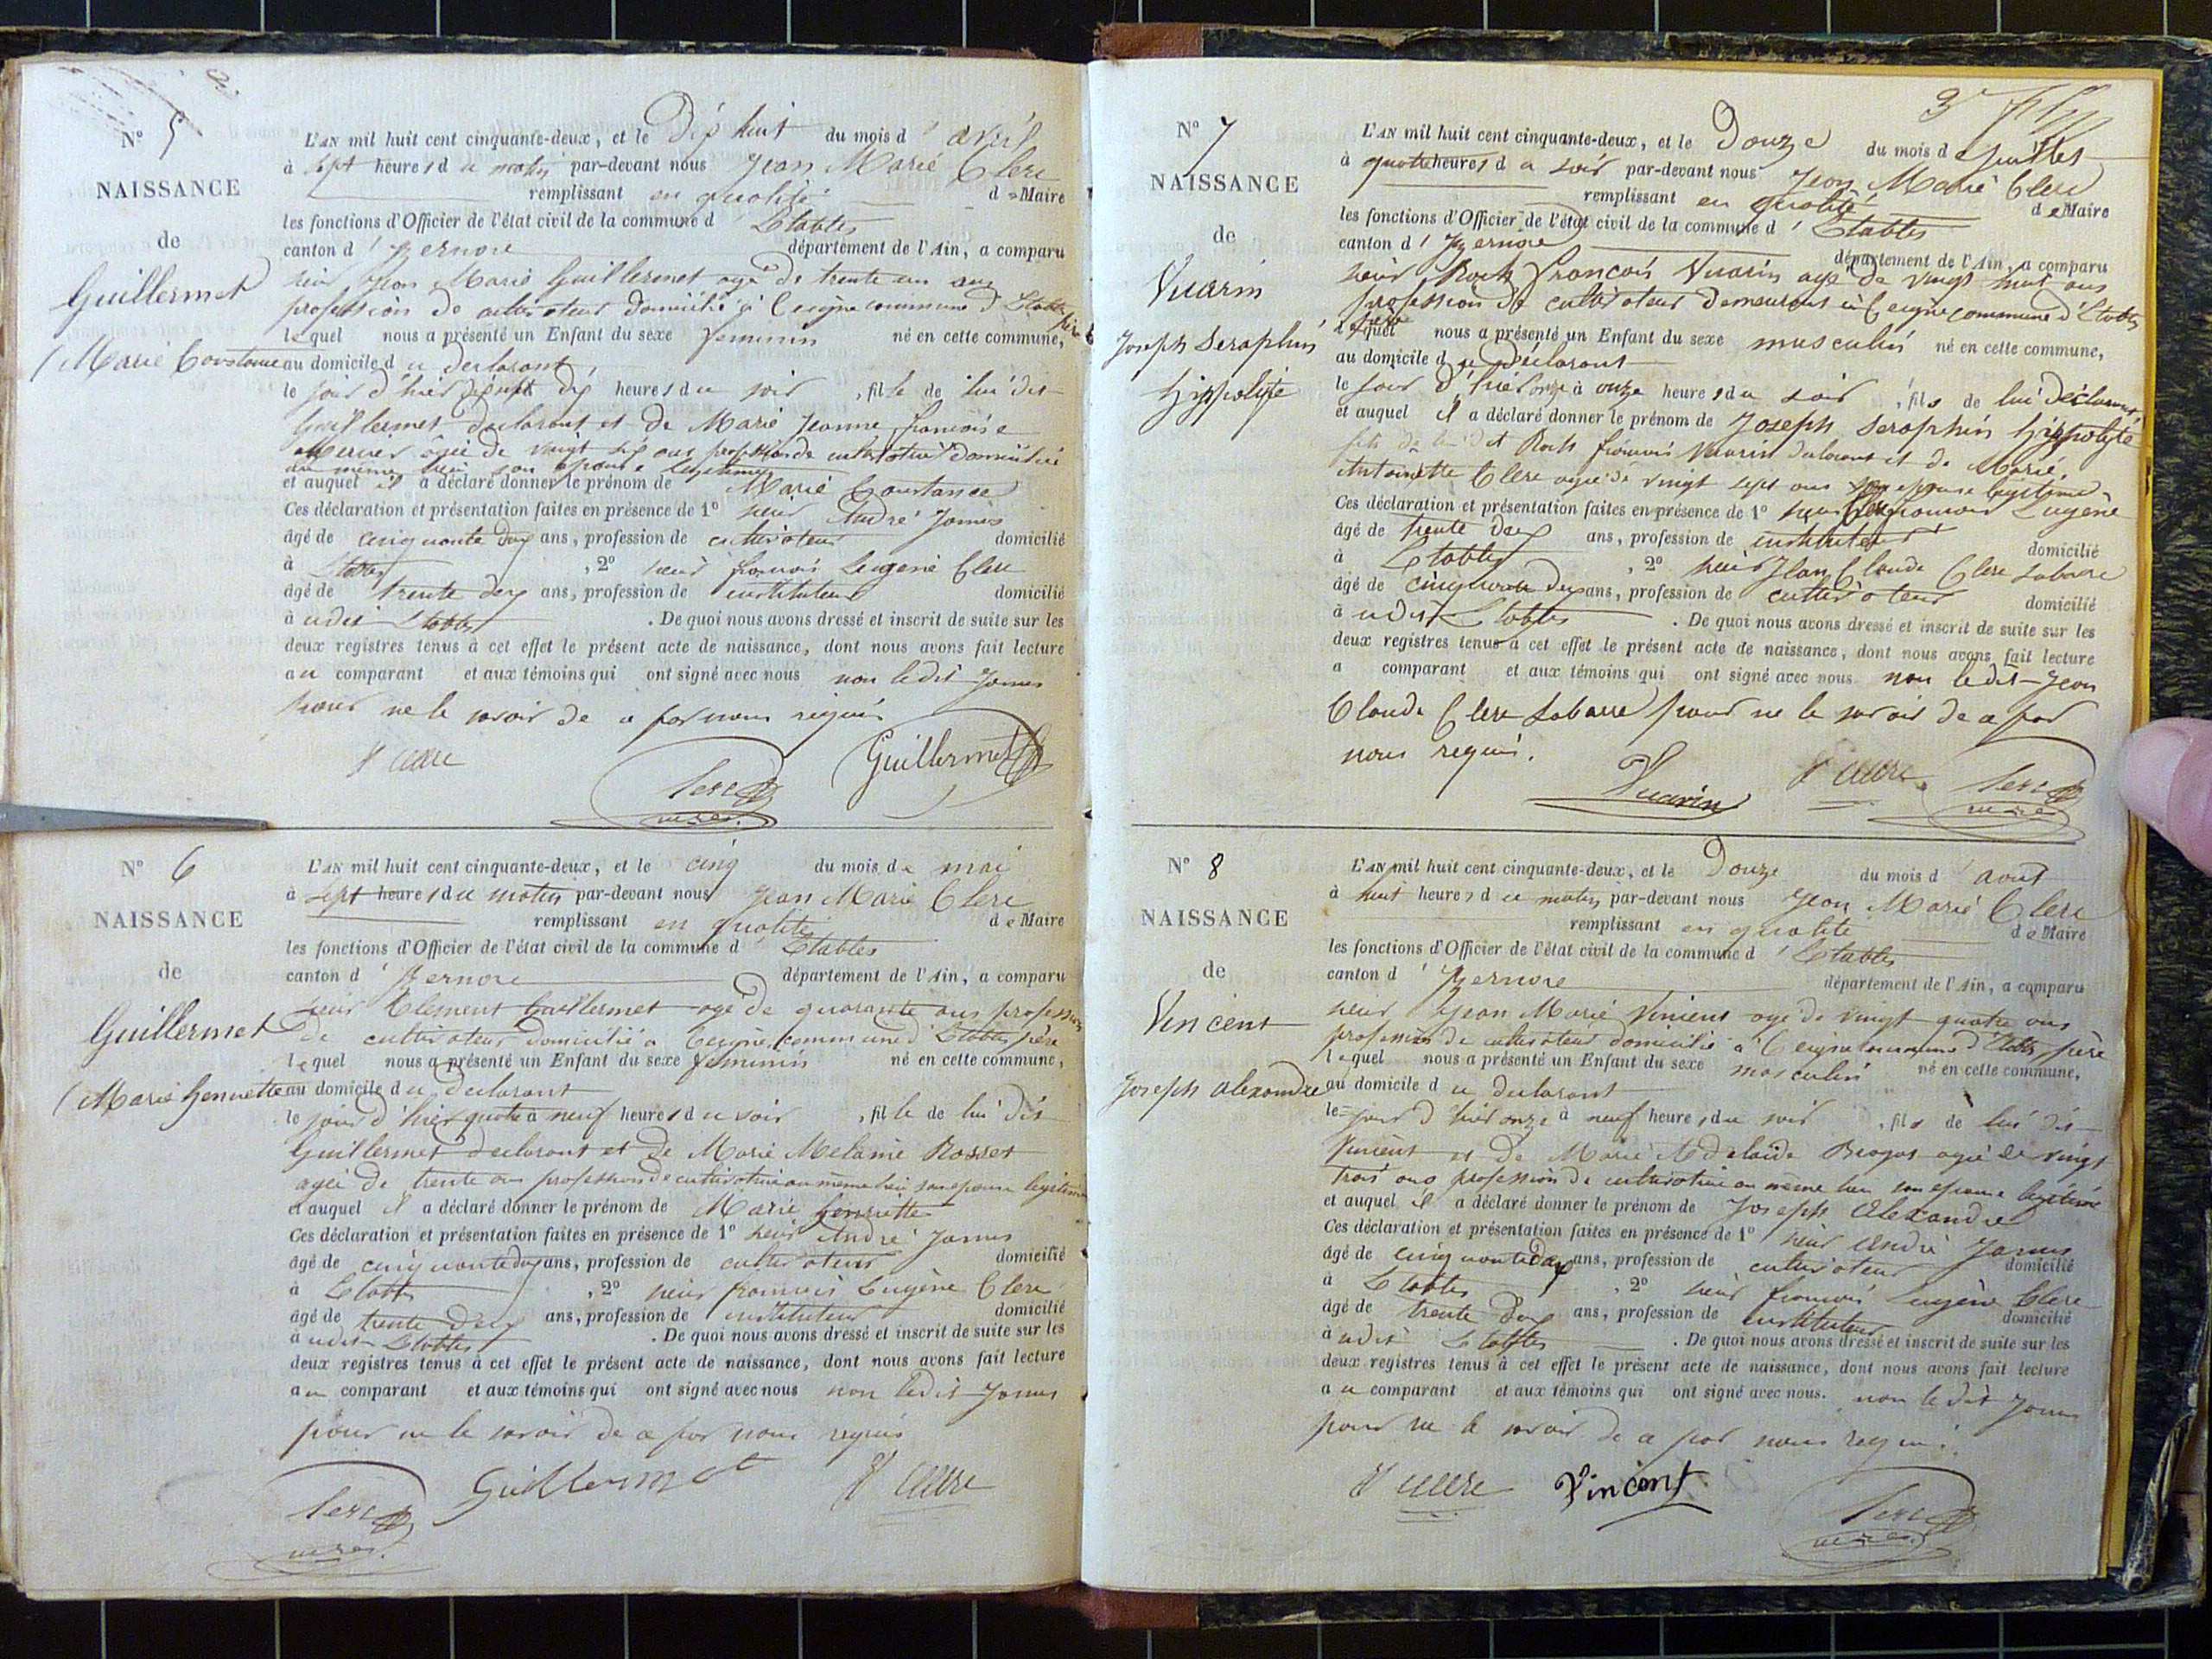 N° 5
NAISSANCE
de
Guillermet
Marie Constance
L'AN mil huit cent cinquante-deux, et le Dix huit du mois d' avril
à sept heures du matin par-devant nous Jean Marie Clerc
remplissant en qualité de Maire
les fonctions d'Officier de l'état civil de la commune d' Etables
canton d' Izernore département de l'Ain, a comparu
sieur Jean Marie Guillermet agé de trente un ans
profession de cultivateur domicilié à Ceigne commune d' Etables père
lequel nous a présenté un Enfant du sexe feminin né en cette commune,
au domicile du declarant
le jour d'hier à dix heures du soir , fille de lui dit
Guillermet declarant et de Marie Jeanne francoise
Mercier agée de vingt six ans profession de cultivatrice domiciliée
au même lieu son epouse legitime
et auquel il a déclaré donner le prénom de Marie Constance
Ces déclaration et présentation faites en présence de 1° sieur André
âgé de cinquante deux ans, profession de cultivateur domicilié
à Etables , 2° sieur francois Eugène Clerc
âgé de trente deux ans, profession de instituteur domicilié
à udit Etables . De quoi nous avons dressé et inscrit de suite sur les
deux registres tenus à cet effet le présent acte de naissance, dont nous avons fait lecture
au comparant et aux témoins qui ont signé avec nous non ledit
pour ne le savoir de ce par nous requis
Clerc Guillermet
N° 6
NAISSANCE
de
Guillermet
Marie henriette
L'AN mil huit cent cinquante-deux, et le cinq du mois de mai
à sept heures du matin par-devant nous Jean Marie Clerc
remplissant en qualité de Maire
les fonctions d'Officier de l'état civil de la commune d' Etables
canton d' Izernore département de l'Ain, a comparu
sieur Clement Guillermet agé de quarante ans profession
de cultivateur domicilié à Ceigne commune d' Etables père
lequel nous a présenté un Enfant du sexe feminin né en cette commune,
au domicile du declarant
le jour d'hier quatre à neuf heures du soir , fille de lui dit
Guillermet declarant et de Marie Melanie Rosset
agée de trente ans profession de cultivatrice au même lieu son epouse legitime
et auquel il a déclaré donner le prénom de Marie henriette
Ces déclaration et présentation faites en présence de 1° sieur André
âgé de cinquante deux ans, profession de cultivateur domicilié
à Etables , 2° sieur francois Eugène Clerc
âgé de trente deux ans, profession de instituteur domicilié
à udit Etables . De quoi nous avons dressé et inscrit de suite sur les
deux registres tenus à cet effet le présent acte de naissance, dont nous avons fait lecture
au comparant et aux témoins qui ont signé avec nous non ledit
pour ne le savoir de ce par nous requis
Clerc Guillermet
3
N° 7
NAISSANCE
de
Vuarin
Joseph Seraphin
hippolyte
L'AN mil huit cent cinquante-deux, et le Douze du mois de juillet
à quatre heures du soir par-devant nous Jean Marie Clerc
remplissant en qualité de Maire
les fonctions d'Officier de l'état civil de la commune d' Etables
canton d' Izernore département de l'Ain, a comparu
sieur Roch François Vuarin agé de vingt huit ans
profession de cultivateur demeurant à Ceigne commune d' Etables
père
lequel nous a présenté un Enfant du sexe masculin né en cette commune,
au domicile du declarant
le jour d'hier onze à onze heures du soir , fils de lui declarant
et auquel il a déclaré donner le prénom de Joseph Seraphin hippolyte
fils de lui dit Roch francois Vuarin declarant et de Marie
Antoinette Clerc agée de vingt sept ans son epouse legitime
Ces déclaration et présentation faites en présence de 1° sieur francois Eugène
âgé de trente deux ans, profession de instituteur domicilié
à Etables , 2° sieur Jean Claude Clerc Labarre
âgé de cinquante deux ans, profession de cultivateur domicilié
à udit Etables . De quoi nous avons dressé et inscrit de suite sur les
deux registres tenus à cet effet le présent acte de naissance, dont nous avons fait lecture
a comparant et aux témoins qui ont signé avec nous non ledit Jean
Claude Clerc Labarre pour ne le savoir de ce par
nous requis.
Vuarin Clerc
N° 8
NAISSANCE
de
Vincent
Joseph alexandre
L'AN mil huit cent cinquante-deux, et le Douze du mois d' aout
à huit heures du matin par-devant nous Jean Marie Clerc
remplissant en qualité de Maire
les fonctions d'Officier de l'état civil de la commune d' Etables
canton d' Izernore département de l'Ain, a comparu
sieur Jean Marie Vincent agé de vingt quatre ans
profession de cultivateur domicilié à Ceigne commune d' Etables père
lequel nous a présenté un Enfant du sexe masculin né en cette commune,
au domicile du declarant
le jour d'hier onze à neuf heures du soir , fils de lui dit
Vincent et de Marie Adelaide agée de vingt
trois ans profession de cultivatrice au même lieu son epouse legitime
et auquel il a déclaré donner le prénom de Joseph Alexandre
Ces déclaration et présentation faites en présence de 1° sieur André
âgé de cinquante deux ans, profession de cultivateur domicilié
à Etables , 2° sieur francois Eugène Clerc
âgé de trente deux ans, profession de instituteur domicilié
à udit Etables . De quoi nous avons dressé et inscrit de suite sur les
deux registres tenus à cet effet le présent acte de naissance, dont nous avons fait lecture
au comparant et aux témoins qui ont signé avec nous. non ledit
pour ne le savoir de ce par nous requis.
Vincent Clerc